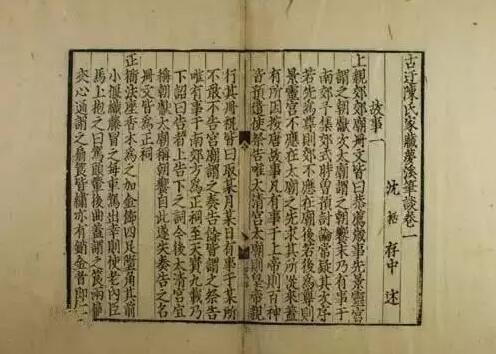 古迂陳氏家藏夢溪筆談卷一
沈括存中述
故事一
上親郊廟冊文皆曰恭薦歲事先景靈宮
謂之朝獻次太廟謂之朝饗末乃有事于
南郊予集郊式時曾預討論常疑其次序
若先為尊則郊不應在廟後若後為尊則
景靈宮不應在太廟之先求其所從來蓋
有所因按唐故事凡有事于上帝則百神
皆預遣使祭告唯太清宮太廟則皇帝親
行其冊祝皆曰取某月某日有事于某所
不敢不告宮廟謂之奏告餘皆謂之祭告
唯有事于南郊方為正祠至天寶九載乃
下詔曰告者上告下之詞今後太清宮宜
稱朝獻太廟稱朝饗自此遂失奏告之名
冊文皆為正祠
正衙法座香木為之加金飾四足墮角其前
小偃織藤冒之每車駕出幸則使老內臣
馬上抱之曰駕頭輦後曲蓋謂之筤兩扇
夾心通謂之扇筤皆繡亦有銷金者即